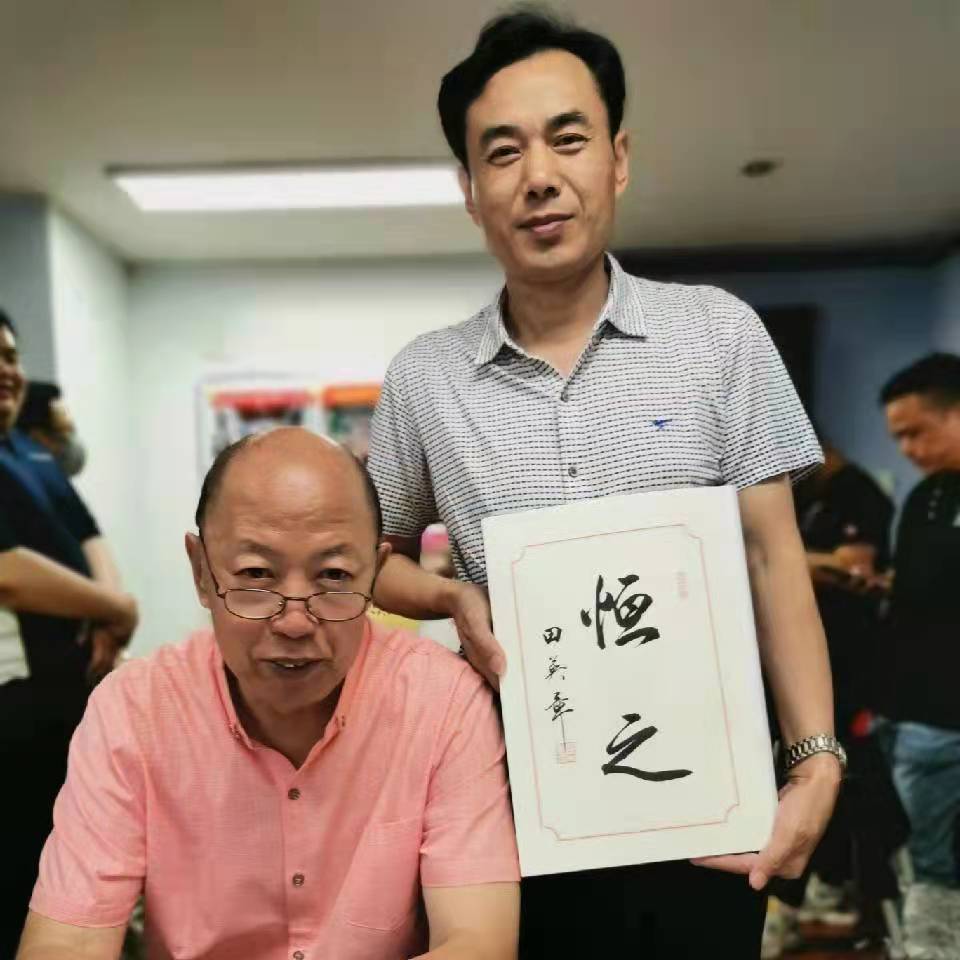 恒之
田英章